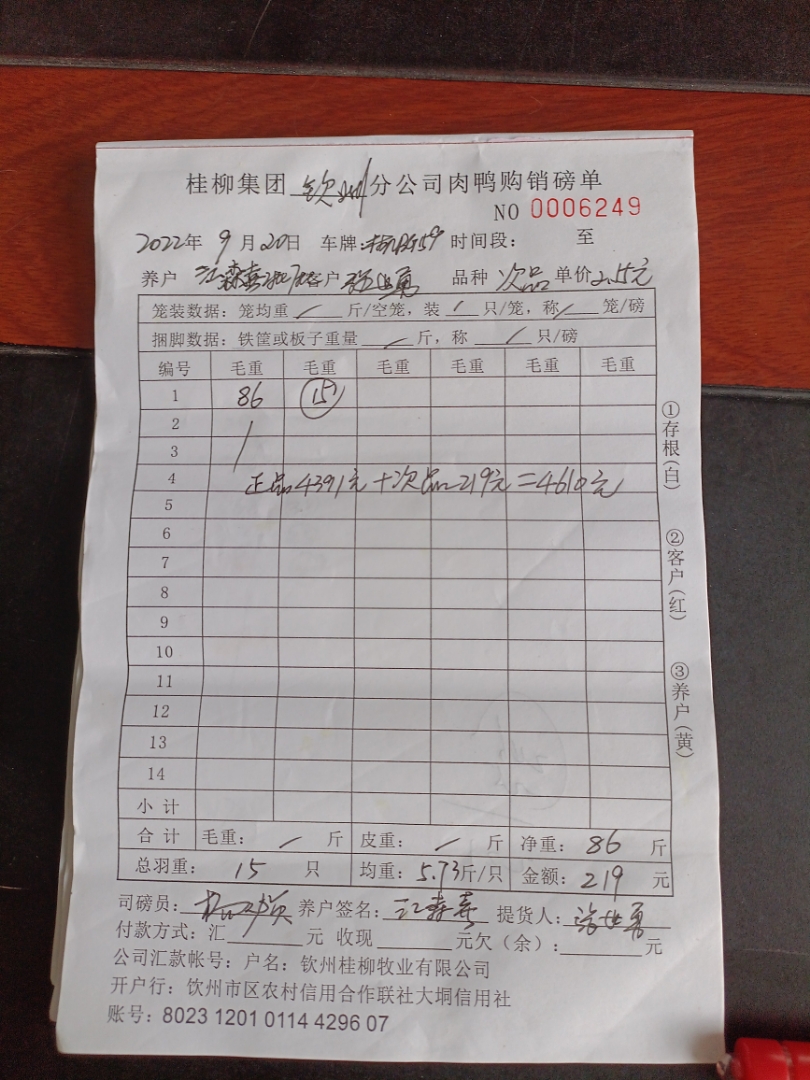 桂柳集团 钦州 分公司肉鸭购销磅单
NO 0006249
2022年 9月20日 车牌: 时间段: 至
养户 江森喜 客户 张世勇 品种 次品 单价2.55元
笼装数据:笼均重 / 斤/空笼,装 / 只/笼,称 / 笼/磅
捆脚数据:铁筐或板子重量 / 斤,称 / 只/磅
编号 毛重 毛重 毛重 毛重 毛重 毛重
1 86 15
2
3
4 正品4391元+次品219元=4610元
5
6
7
8
9
10
11
12
13
14
小计
合计 毛重: / 斤 皮重: / 斤 净重: 86 斤
总羽重: 15 只 均重: 5.73斤/只 金额: 219 元
司磅员: 养户签名: 江森喜 提货人: 张世勇
付款方式:汇 元 收现 元欠(余): 元
公司汇款帐号:户名:钦州桂柳牧业有限公司
开户行:钦州市区农村信用合作联社大垌信用社
账号:8023 1201 0114 4296 07
①存根(白)
②客户(红)
③养户(黄)